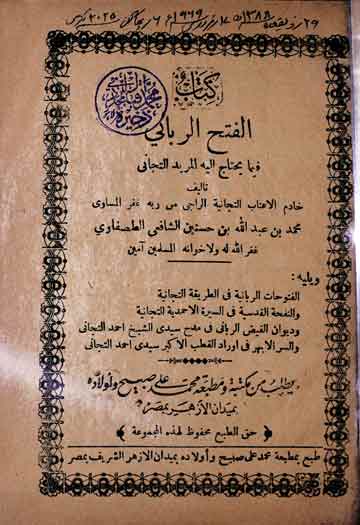 كتاب
الفتح الرباني
فيما يحتاج اليه المريد التجاني
تأليف
خادم الاعتاب التجانية الراجي من ربه غفر المساوى
محمد بن عبد الله بن حسنين الشافعى الطصفاوي
غفر الله له ولاخوانه المسلمين آمين
ويليه :
الفتوحات الربانية فى الطريقة التجانية
والنفحة القدسية فى السيرة الاحمدية التجانية
وديوان الفيض الربانى فى مدح سيدى الشيخ احمد التجانى
والسر الابهر فى اوراد القطب الاكبر سيدى احمد التجانى
يطلب من مكتبة ومطبعة محمد على صبيح وأولاده
بميدان الأزهر بمصر
حق الطبع محفوظ لهذه المجموعة
طبع بمطبعة محمد على صبيح وأولاده بميدان الازهر الشريف بمصر